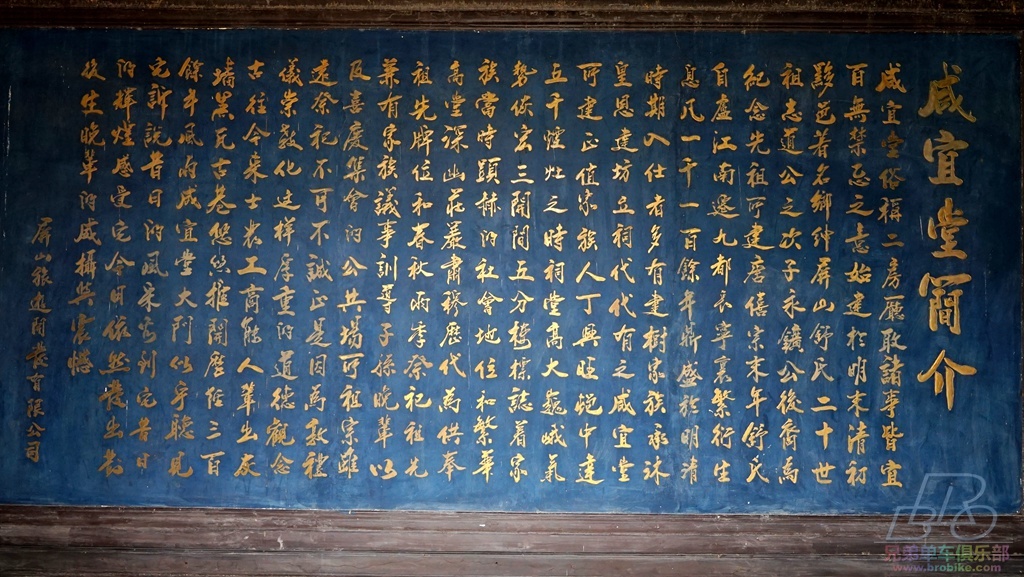 咸宜堂簡介
咸宜堂俗稱二房廳取諸事皆宜
百無禁忌之意始建於明末清初
黟邑著名鄉紳屏山舒氏二十世
祖志道公之次子永鑛公後裔為
紀念先祖所建唐僖宗末年舒氏
自廬江南遷九都長寧裏繁衍生
息凡一千一百餘年鼎盛於明清
時期入仕者多有建樹家族承沐
皇恩建坊立祠代代有之咸宜堂
所建正值家族人丁興旺號中達
五千煙灶之時祠堂高大巍峨氣
勢恢宏三開間五分樓標誌着家
族當時顯赫的社會地位和繁華
高堂深幽莊嚴肅穆歷代為供奉
祖先牌位和春秋兩季祭祀祖先
兼有家族議事訓導子孫晚輩以
及喜慶集會的公共場所祖宗雖
遠祭祀不可不誠正是因為教禮
儀崇教化這樣厚重的道德觀念
古往今來士农工商能人輩出灰
墻黑瓦古巷悠悠推開歷經三百
餘年風雨咸宜堂大門似乎聽見
它訴說昔日的風采告別它昔日
的輝煌感受它今日依然發出對
後生晚輩的威攝與震憾
屏山旅遊開發有限公司
兄弟单车俱乐部
www.brobike.com